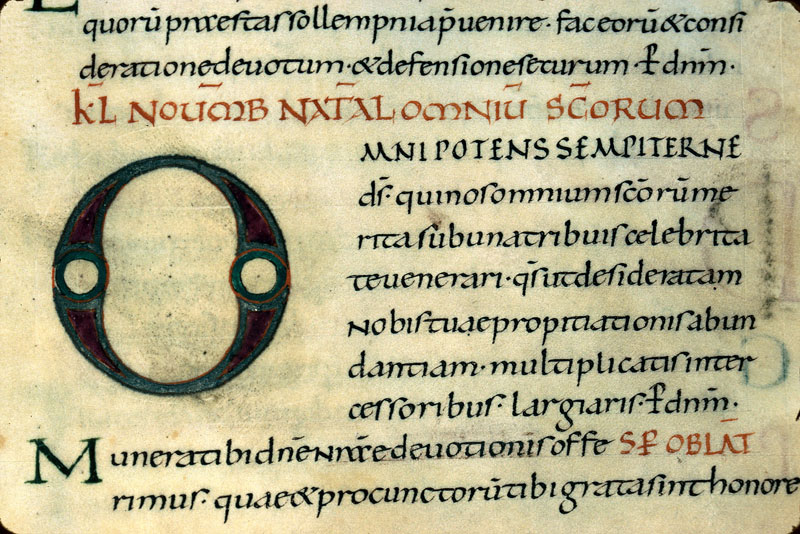 quorū praestas sollempnia p̄uenire· fac eorū & consi
deratione deuotum· & defensione securum· P̄ dnm̄·
K̄L NOUEM̄B NAT̄AL OMNIŪ SC̄ORUM
OMNIPOTENS SEMPITERNE
ds̄· qui nos omnium sc̄orū me
rita sub una tribuis celebrita
te uenerari· qs̄ ut desideratam
nobis tuae propitiationis abun
dantiam· multiplicatis inter
cessoribus· largiaris· P̄ dnm̄·
Munera tibi dn̄e nr̄ae deuotionis offe SP̄ OBLAT̄
rimus· quae & pro cunctorū tibi grata sint honore